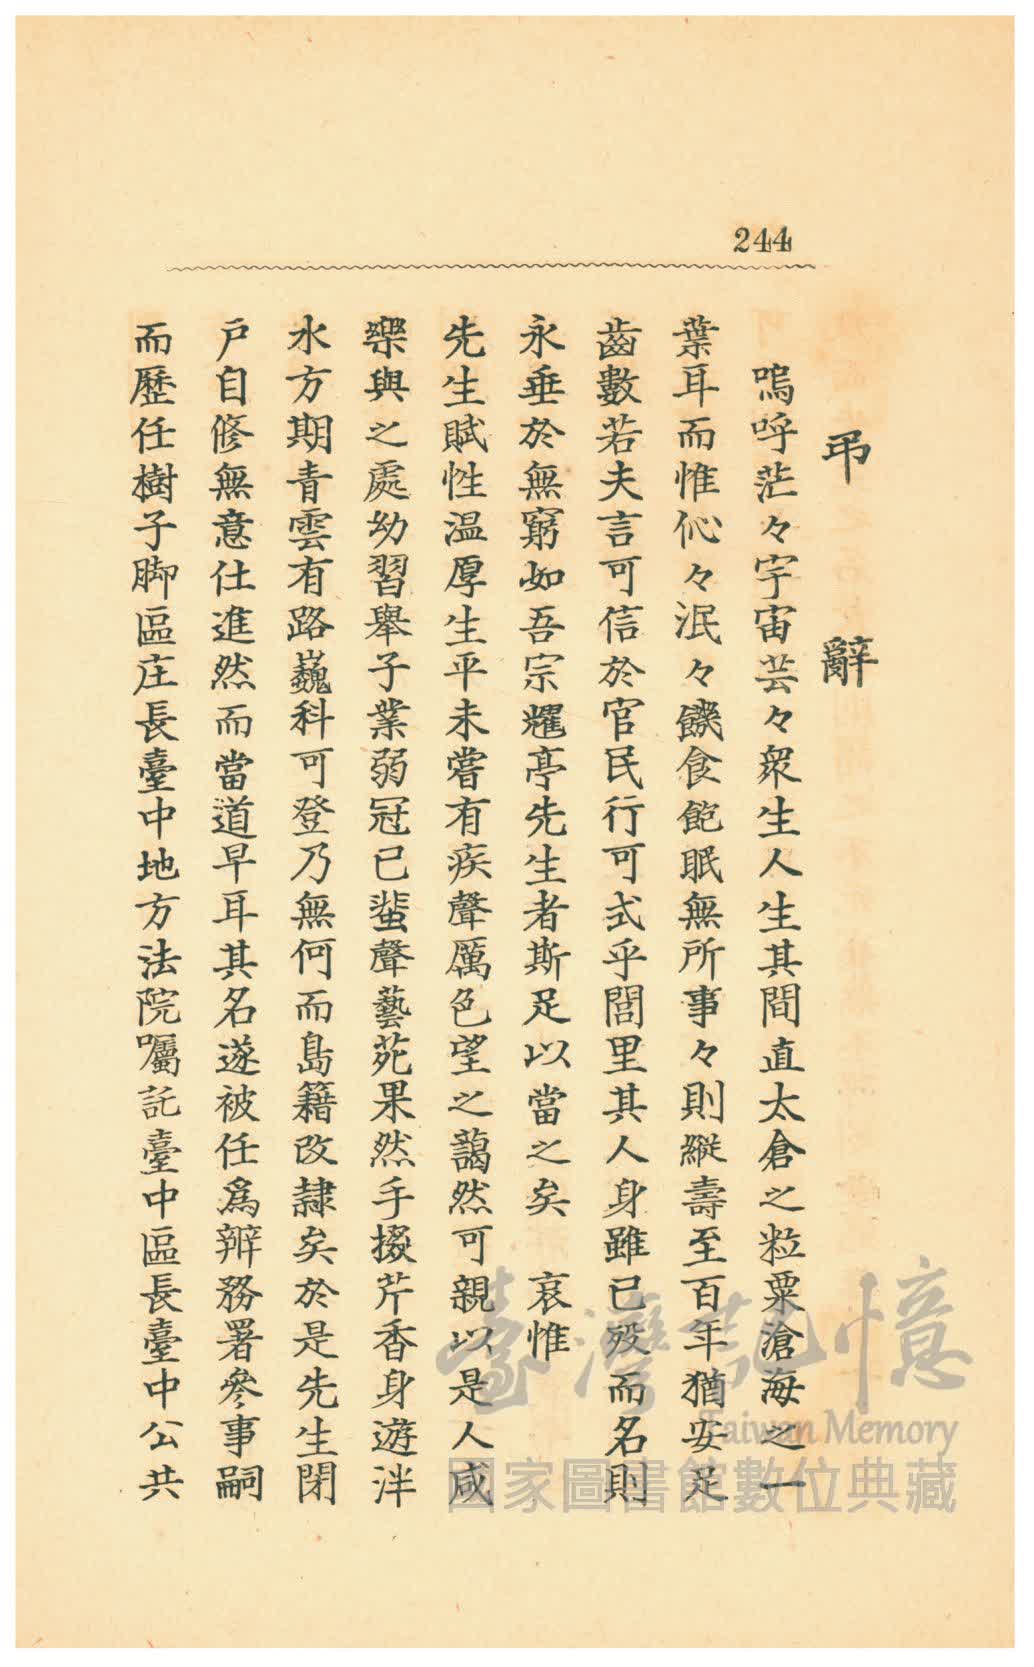 244
弔辭
嗚呼茫々宇宙芸々衆生人生其間直太倉之粒粟滄海之一
葉耳而惟伈々泯々饑食飽眠無所事々則縱壽至百年猶安足
齒數若夫言可信於官民行可式乎閭里其人身雖已歿而名則
永垂於無窮如吾宗耀亭先生者斯足以當之矣 哀惟
先生賦性温厚生平未嘗有疾聲厲色望之藹然可親以是人咸
樂與之處幼習舉子業弱冠已蜚聲藝苑果然手掇芹香身遊泮
水方期青雲有路巍科可登乃無何而島籍改隷矣於是先生閉
戶自修無意仕進然而當道早耳其名遂被任爲辧務署參事嗣
而歷任樹子脚區庄長臺中地方法院囑託臺中區長臺中公共
臺灣記憶
Taiwan Memory
國家圖書館數位典藏